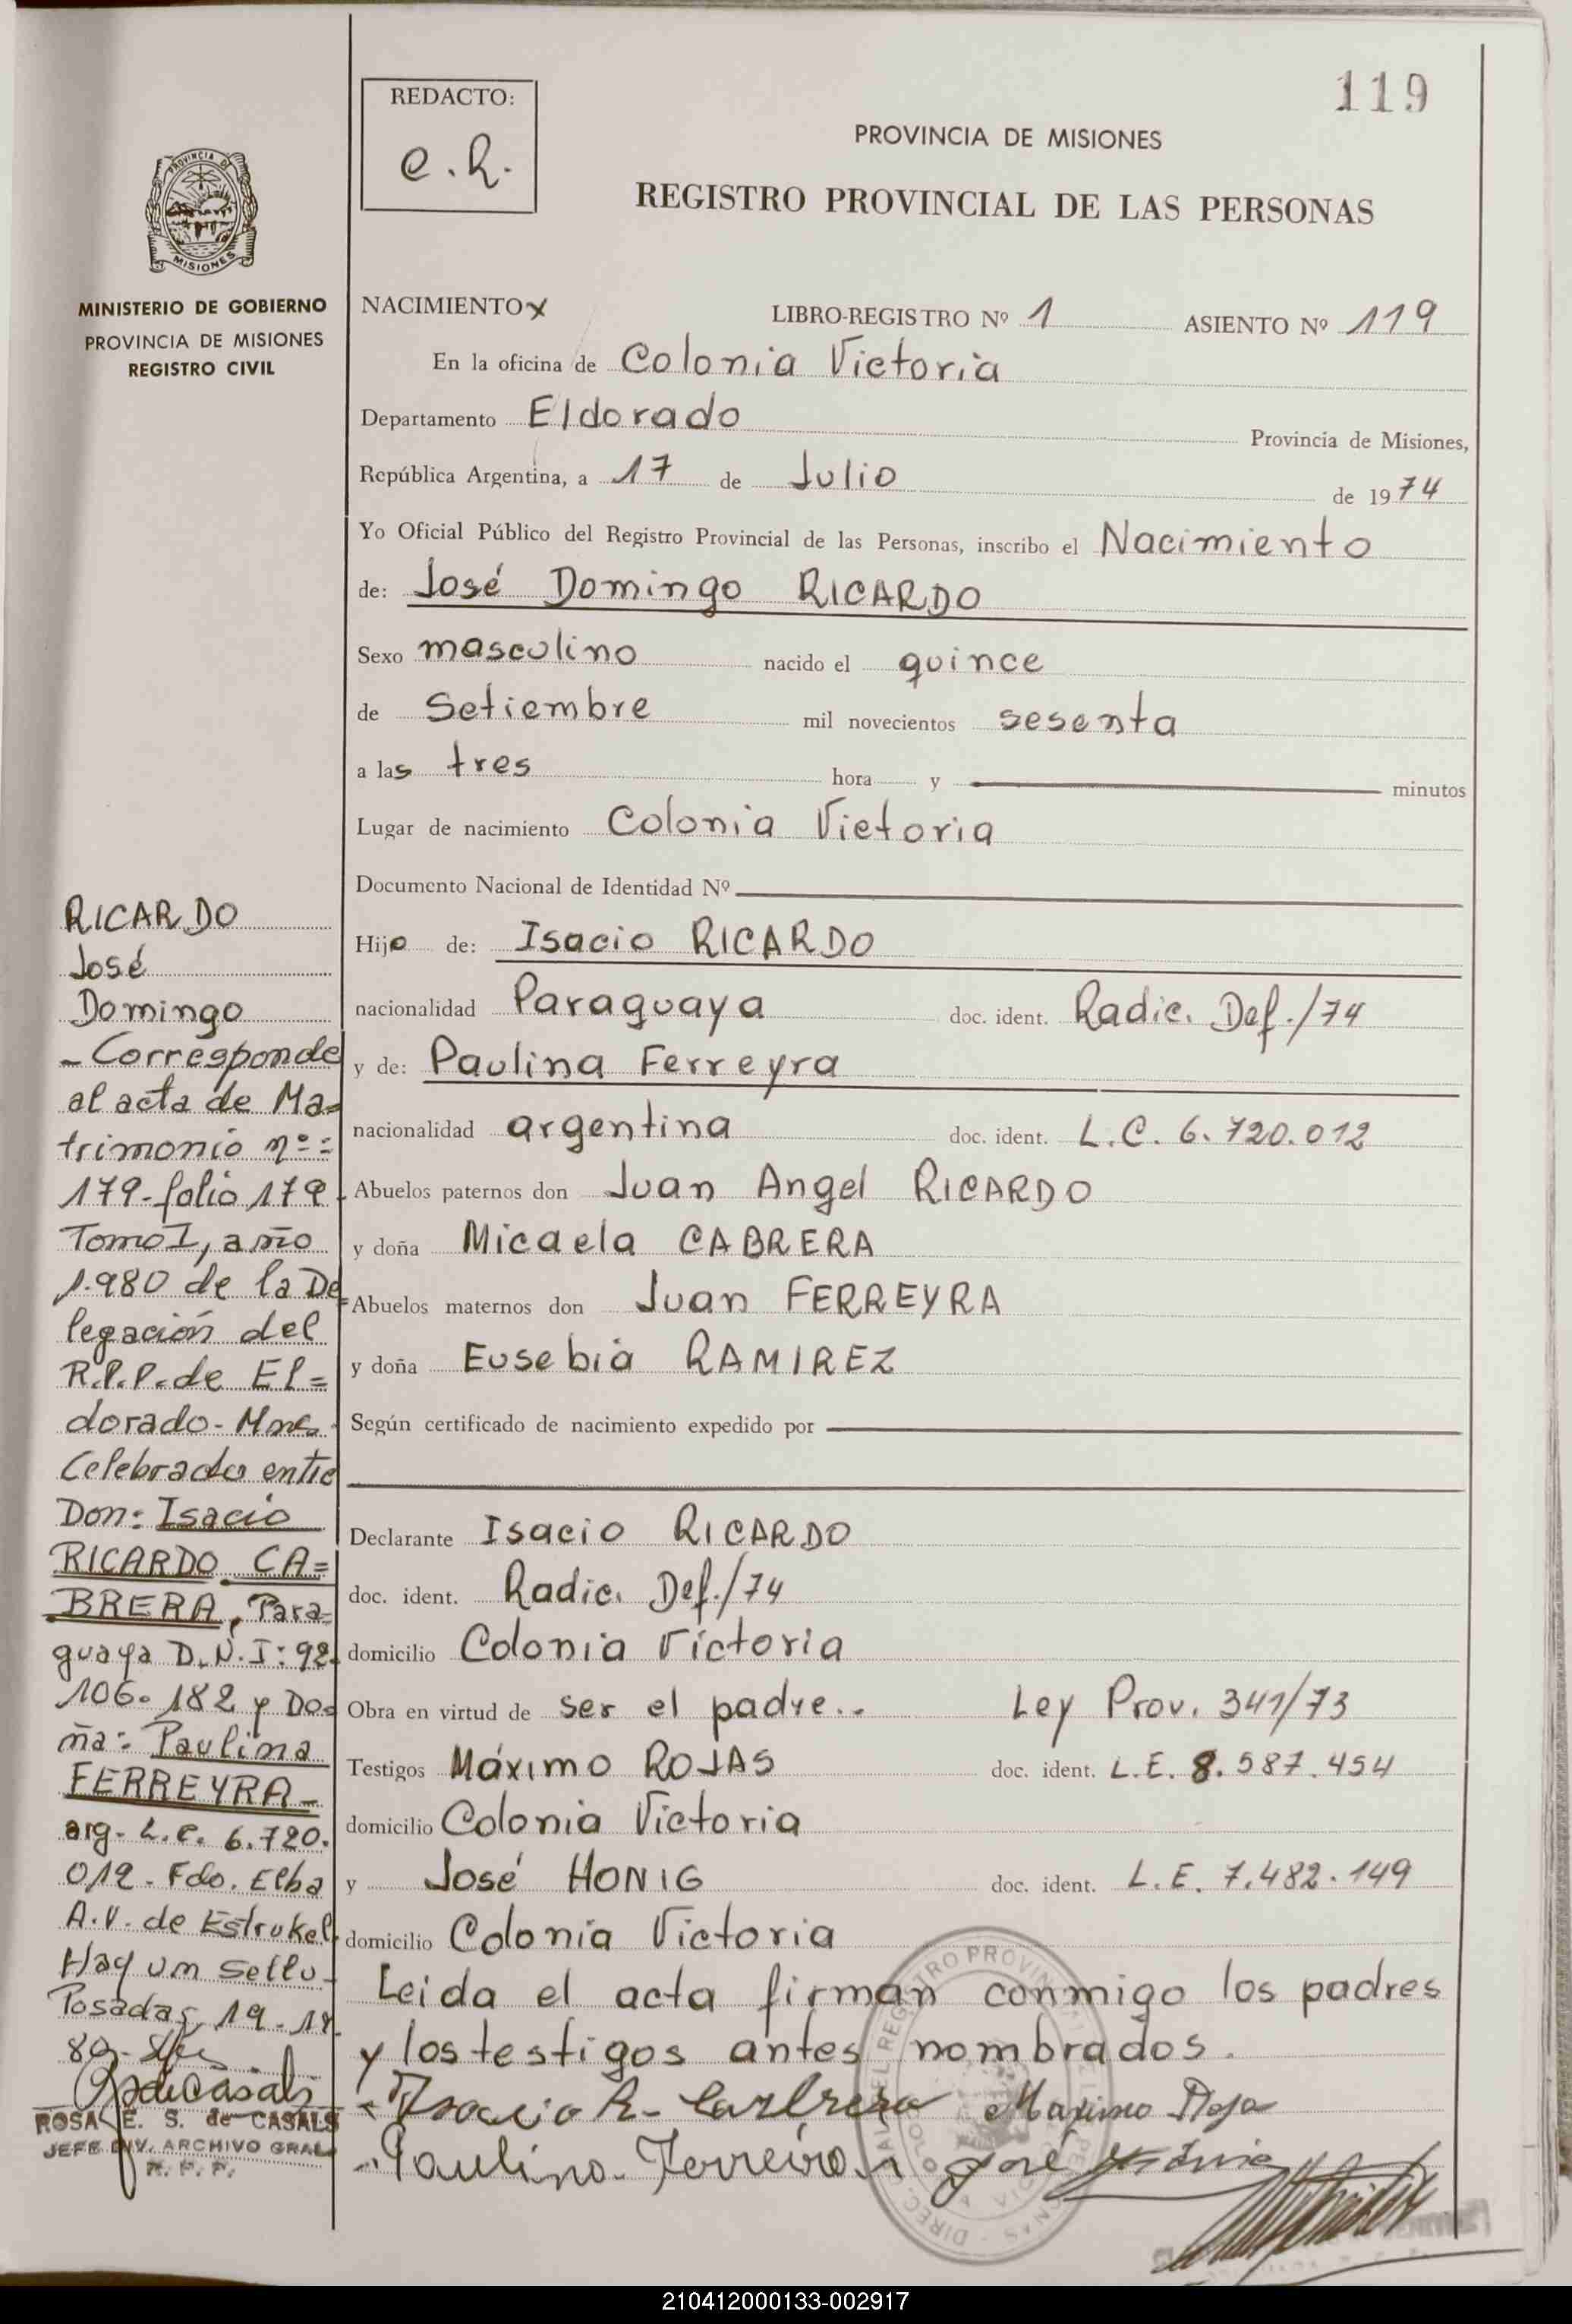 119
REDACTO:
e.R.
PROVINCIA DE MISIONES
REGISTRO PROVINCIAL DE LAS PERSONAS
PROVINCIA DE
MISIONES
MINISTERIO DE GOBIERNO
PROVINCIA DE MISIONES
REGISTRO CIVIL
NACIMIENTO X LIBRO-REGISTRO Nº 1 ASIENTO Nº 119
En la oficina de Colonia Victoria
Departamento Eldorado Provincia de Misiones,
República Argentina, a 17 de Julio de 1974
Yo Oficial Público del Registro Provincial de las Personas, inscribo el Nacimiento
de: José Domingo RICARDO
Sexo masculino nacido el quince
de Setiembre mil novecientos sesenta
a las tres hora y minutos
Lugar de nacimiento Colonia Victoria
Documento Nacional de Identidad Nº
Hijo de: Isacio RICARDO
nacionalidad Paraguaya doc. ident. Radic. Def./74
y de: Paulina Ferreyra
nacionalidad argentina doc. ident. L.C. 6.720.012
Abuelos paternos don Juan Angel RICARDO
y doña Micaela CABRERA
Abuelos maternos don Juan FERREYRA
y doña Eusebia RAMIREZ
Según certificado de nacimiento expedido por
Declarante Isacio RICARDO
doc. ident. Radic. Def./74
domicilio Colonia Victoria
Obra en virtud de ser el padre.. Ley Prov. 341/73
Testigos Máximo ROJAS doc. ident. L.E. 8.587.454
domicilio Colonia Victoria
y José HONIG doc. ident. L.E. 7.482.149
domicilio Colonia Victoria
Leida el acta firman conmigo los padres
y los testigos antes nombrados.
Isacio R. Cabrera Maximo Roja
Paulina Ferreira José
RICARDO
José
Domingo
- Corresponde
al acta de Ma=
trimonio nº=
179-folio 179
Tomo I, año
1.980 de la De
=
legación del
R.P.P. de El=
dorado-Mnes.
Celebrado entre
Don: Isacio
RICARDO CA=
BRERA, Para=
guaya D.N.I: 92.
106.182 y Do=
ña: Paulina
FERREYRA-
arg- L.C. 6.720.
012- Fdo. Elba
A.V. de Estrukel
Hay un sello-
Posadas, 19-12-
80-
ROSA E. S. de CASALS
JEFE DIV. ARCHIVO GRAL.
R. P. P.
210412000133-002917